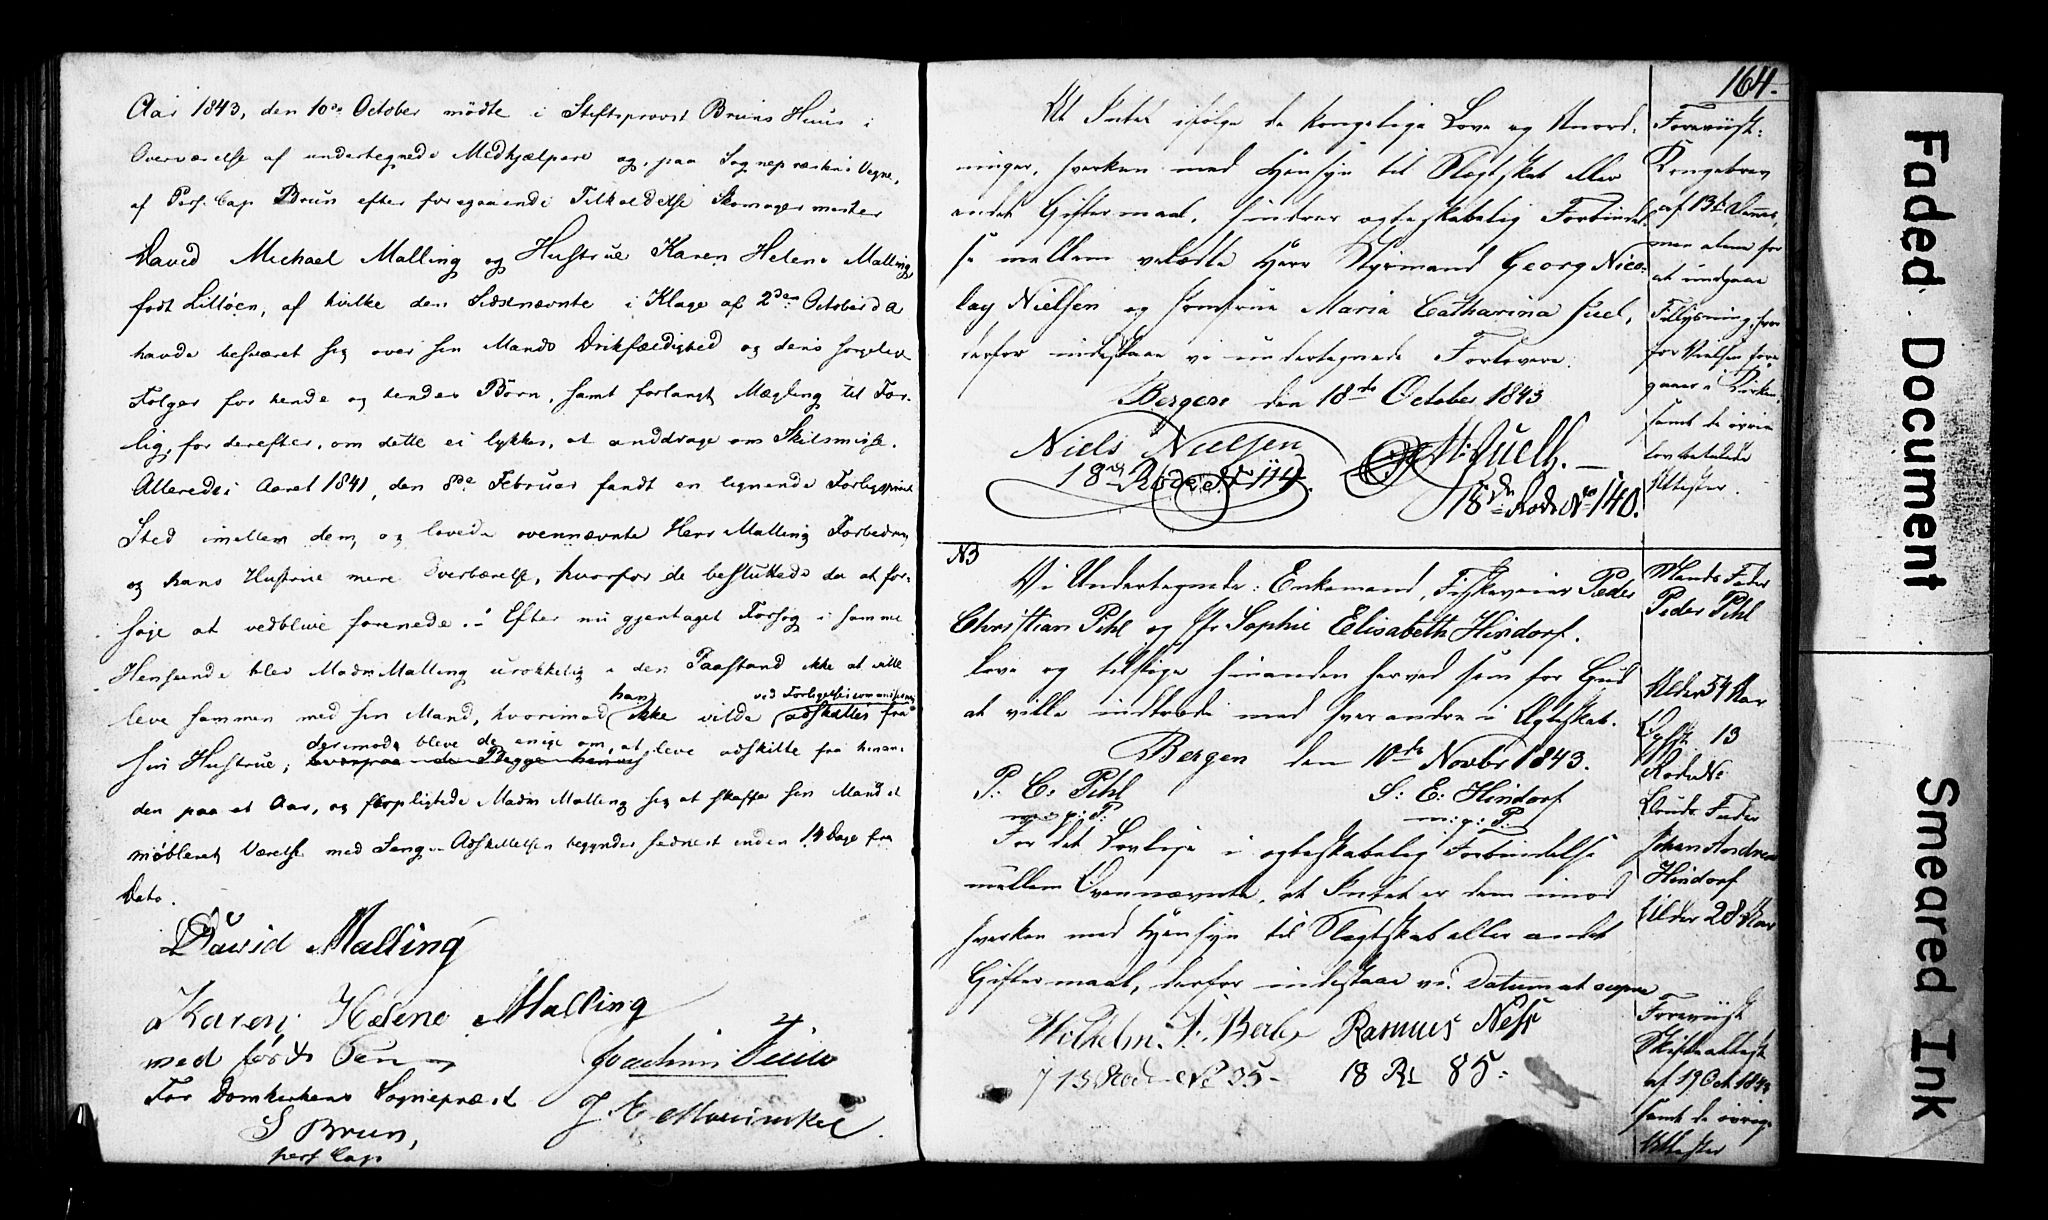 Aar 1843, den 10de October mødte i Stiftsprovst Bruns Huus i
Overværelse af undertegnede Medhjælpere og, paa Sognepræstens Vegne,
af Pers. Cap Brun efter foregaaende Tilholdelse Skomagermester
David Michael Malling og Hustrue Karen Helene Malling
født Lilløen, af hvilke den Sidstnævnte i Klage af 2den October d A
havde besværet sig over sin Mands Drikfældighed og dens sørgelige
Følger for hende og hendes Børn, samt forlangt Mægling til For-
lig, for derefter, om dette ei lykkes, at anddrage om Skilsmisse.
Allerede i Aaret 1841, den 8de Februar fandt en lignende Forligsprøve
Sted imellem dem, og lovede ovennævnte Herr Malling Forbedring
og hans Hustrue mere Overbærelse, hvorfor de besluttede da at for-
søge at vedblive forenede. Efter nu gjentaget Forsøg i samme
Henseende blev Madm Malling urokkelig i den Paastand ikke at ville
leve sammen med sin Mand, hvorimod han ikke vilde ved Forligelsescommissionen adskilles fra
sin Hustrue; derimod bleve de enige om, at leve adskilte fra hinan-
den paa et Aar, og forpligtede Madm Malling sig at skaffe sin Mand et
møbleret Værelse med Seng. Adskillelsen begynder sednest inden 14 Dage fra
Dato.
David Malling
Karen Helene Malling
med ført Pen
For Domkirkens Sognepræst
S Brun,
pers Cap
Joachim
J E Mowinckel.
164.
At Intet ifølge de kongelige Love og Anord-
ninger, hverken med Hensyn til Slægtskab eller
andet Giftermaal, hindrer ægteskabelig Forbindel-
se mellem velædle Herr Styrmand Georg Nico-
lay Nielsen og Jomfrue Maria Catharina Juel,
derfor indestaae vi undertegnede Forlovere.
Bergen den 18de October 1843
Niels Nielsen
18de Rode No 114.
M: Juell.
18de Rode No 140.
Foreviist:
Kongebrev
af 13de
men alene for
at undgaae
Tillysning, hvor-
for Vielsen fore-
gaaer i Kirken,
samt de øvrige
lovbefalede
Attester.
N3
Vi Undertegnede: Enkemand, Fiskeveier Peder
Christian Pihl og Jfr Sophie Elisabeth Hindorf.
love og tilsige hinanden herved som for Gud
at ville indtræde med hverandre i Ægteskab.
Bergen den 10de Novbr 1843.
P: C: Pihl
m: p: P:
S: E: Hindorf
m: p: P:
For det Lovlige i ægteskabelig Forbindelse
mellem Ovennævnte, at Intet er dem imod
hverken med Hensyn til Slægtskab eller andet
Giftermaal, derfor indestaae vi. Datum ut supra
Wilhelm
13 Rode No 35
Rasmus Ness
18 Rd 85
Mands Fader
Peder Pihl
Alder 54 Aar
13
Rode No
Bruds Fader
Johan Andreas
Hindorf
Alder 28 Aar
Foreviist
Skifteattest
af 19 Oct 1843
samt de øvrige
Attester
Faded Document
Smeared Ink